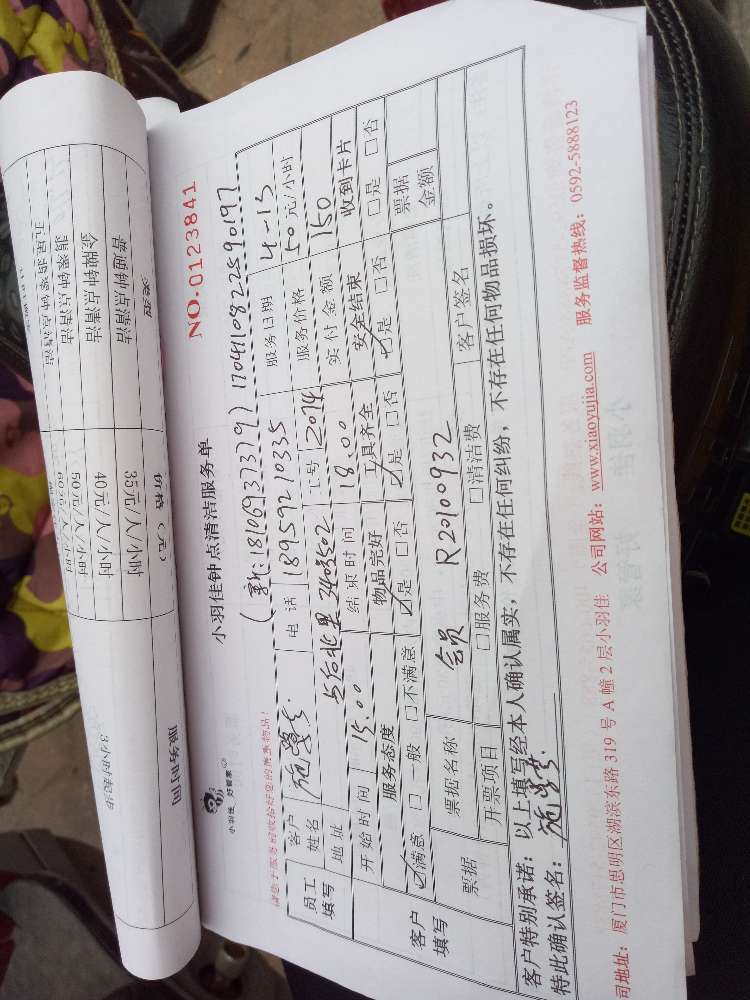 类型 价格（元） 服务时间
普通钟点清洁 35元/人/小时 3小时起步
金牌钟点清洁 40元/人/小时
翡翠钟点清洁 50元/人/小时
五星翡翠钟点清洁
小羽佳 好管家
小羽佳钟点清洁服务单
NO.0123841
(新:18106937379) 1704110822590197
员工填写
客户姓名 电话 18959210335 服务日期 4-15
地址 34#502 工号 2074 服务价格 50元/小时
开始时间 15.00 结束时间 18.00 实付金额 150
客户填写
服务态度 物品完好 工具齐全 安全结束 收到卡片
☑满意 □一般 □不满意 ☑是 □否 ☑是 □否 ☑是 □否 □是 □否
票据 票据名称 会员 R20100932 票据金额
开票项目 □服务费 □清洁费 客户签名
客户特别承诺：以上填写经本人确认属实，不存在任何纠纷，不存在任何物品损坏。
特此确认签名：
司地址：厦门市思明区湖滨东路319号A幢2层小羽佳 公司网站：www.xiaoyujia.com 服务监督热线：0592-5888123